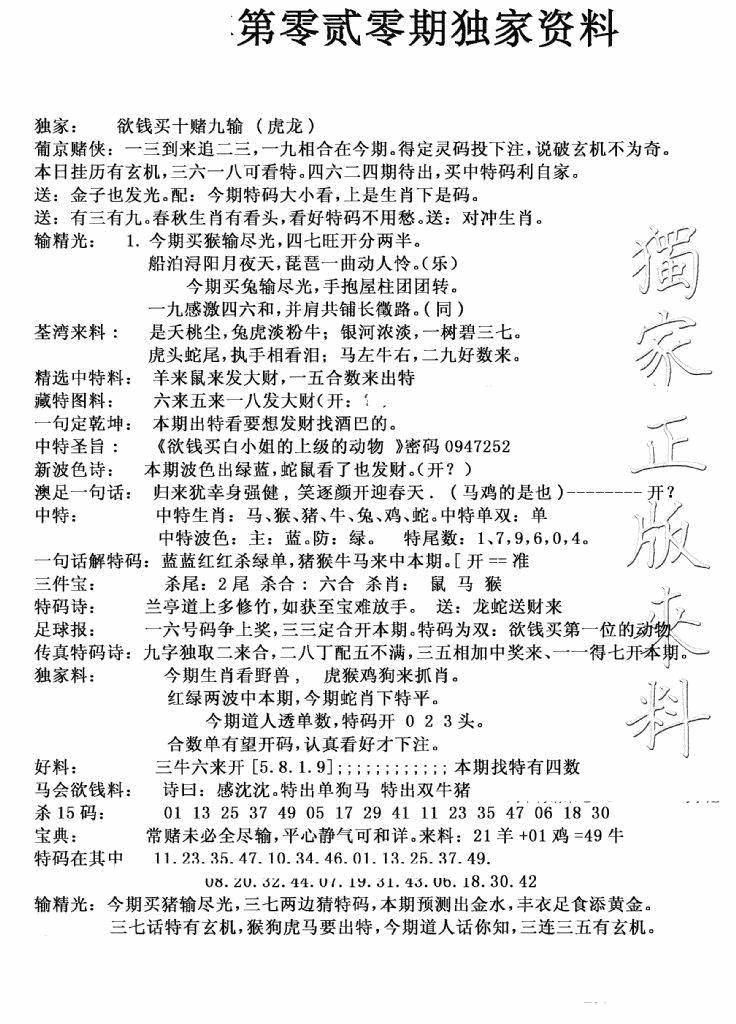 第零贰零期独家资料
独家： 欲钱买十赌九输 (虎龙)
葡京赌侠：一三到来追二三，一九相合在今期。得定灵码投下注，说破玄机不为奇。
本日挂历有玄机，三六一八可看特。四六二四期待出，买中特码利自家。
送：金子也发光。配：今期特码大小看，上是生肖下是码。
送：有三有九。春秋生肖有看头，看好特码不用愁。送：对冲生肖。
输精光： 1. 今期买猴输尽光，四七旺开分两半。
船泊浔阳月夜天，琵琶一曲动人怜。(乐)
今期买兔输尽光，手抱屋柱团团转。
一九感激四六和，并肩共铺长徵路。(同)
荃湾来料： 是夭桃尘，兔虎淡粉牛；银河浓淡，一树碧三七。
虎头蛇尾，执手相看泪；马左牛右，二九好数来。
精选中特料： 羊来鼠来发大财，一五合数来出特
藏特图料： 六来五来一八发大财(开：
一句定乾坤： 本期出特看要想发财找酒巴的。
中特圣旨： 《欲钱买白小姐的上级的动物 》密码 0947252
新波色诗： 本期波色出绿蓝，蛇鼠看了也发财。(开？)
澳足一句话： 归来犹幸身强健，笑逐颜开迎春天．（马鸡的是也)--------开？
中特： 中特生肖：马、猴、猪、牛、兔、鸡、蛇。中特单双：单
中特波色：主：蓝。防：绿。 特尾数：1、7、9、6、0、4。
一句话解特码：蓝蓝红红杀绿单，猪猴牛马来中本期。[ 开 == 准
三件宝： 杀尾：2 尾 杀合：六合 杀肖： 鼠 马 猴
特码诗： 兰亭道上多修竹，如获至宝难放手。 送：龙蛇送财来
足球报： 一六号码争上奖，三三定合开本期。特码为双：欲钱买第一位的动物
传真特码诗：九字独取二来合，二八丁配五不满，三五相加中奖来、一一得七开本期。
独家料： 今期生肖看野兽， 虎猴鸡狗来抓肖。
红绿两波中本期，今期蛇肖下特平。
今期道人透单数，特码开 0 2 3 头。
合数单有望开码，认真看好才下注。
好料： 三牛六来开 [5.8.1.9];;;;;;;;;;;; 本期找特有四数
马会欲钱料： 诗曰：感沈沈。特出单狗马 特出双牛猪
杀 15 码： 01 13 25 37 49 05 17 29 41 11 23 35 47 06 18 30
宝典： 常赌未必全尽输，平心静气可和详。来料：21 羊 +01 鸡 =49 牛
特码在其中 11. 23. 35. 47. 10. 34. 46. 01. 13. 25. 37. 49.
08. 20. 32. 44. 07. 19. 31. 43. 06. 18. 30. 42
输精光：今期买猪输尽光，三七两边猜特码，本期预测出金水，丰衣足食添黄金。
三七话特有玄机，猴狗虎马要出特，今期道人话你知，三连三五有玄机。
獨家正版來料